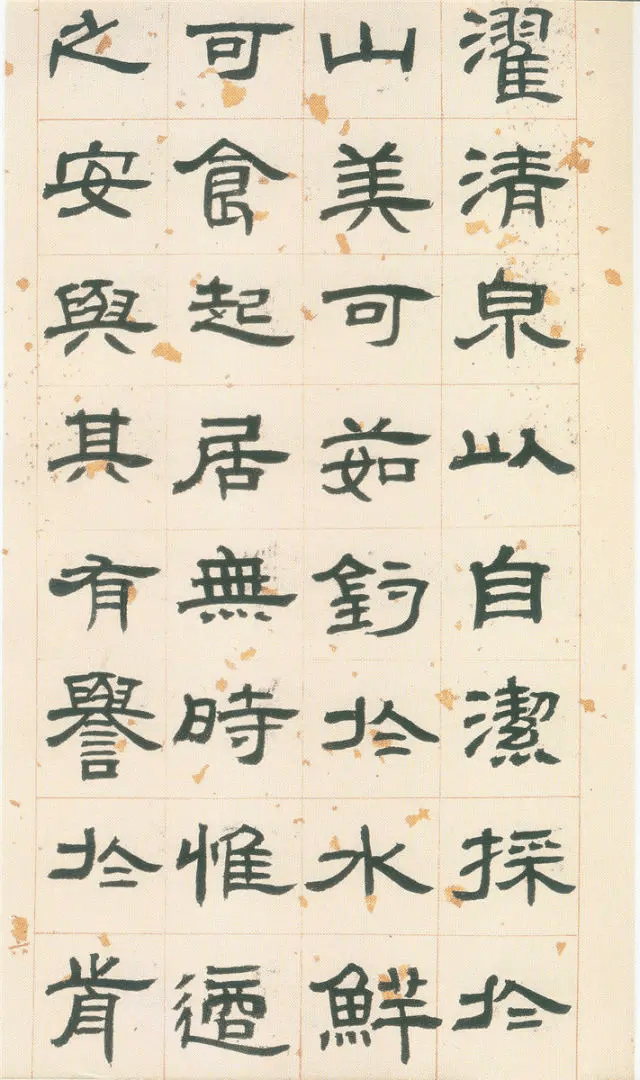 濯清泉以自潔採於
山美可茹釣於水鮮
可食起居無時惟適
之安與其有譽於歬